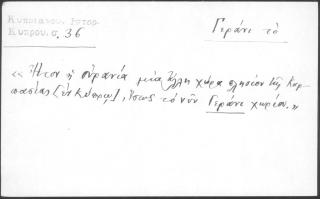 Κυπριανού. Ιστορ.
Κύπρου. σ. 36
Γεράνι τὸ
« Ἦτον ἡ Οὐρανία μία ἄλλη χώρα πλησίον τῆς Καρ-
πασίας [ἐν Κύπρῳ], ἴσως τὸ νῦν Γεράνι χωρίον. »